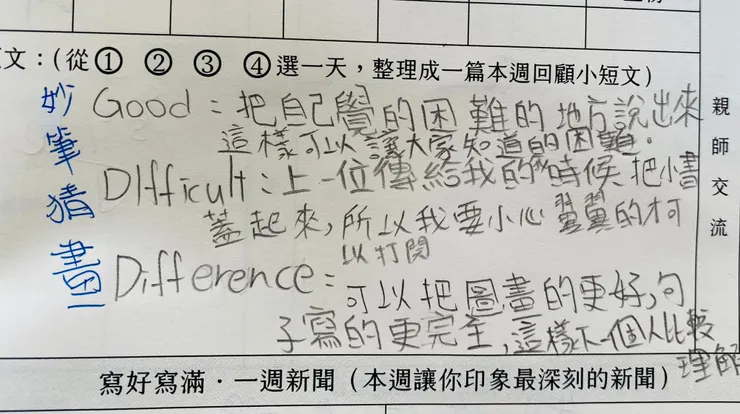 文：(從① ② ③ ④選一天，整理成一篇本週回顧小短文)
妙筆猜畫
Good：把自己覺的困難的地方說出來
這樣可以讓大家知道的困難.
DIfficult：上一位傳給我的時候把小書
蓋起來,所以我要小心翼翼的才可
以打開
Difference：可以把圖畫的更好,句
子寫的更完全,這樣下一個人比較
理解
親師交流
寫好寫滿．一週新聞（本週讓你印象最深刻的新聞）